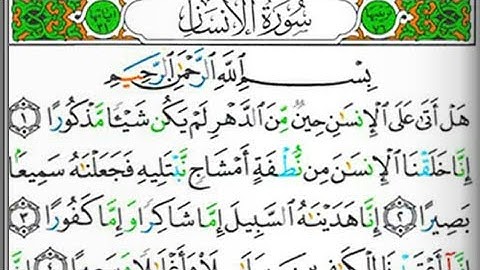 سُورَةُ الْإِنسَانِ
بِسْمِ اللَّهِ الرَّحْمَٰنِ الرَّحِيمِ
هَلْ أَتَىٰ عَلَى الْإِنسَٰنِ حِينٌ مِّنَ الدَّهْرِ لَمْ يَكُن شَيْـًٔا مَّذْكُورًا ١
إِنَّا خَلَقْنَا الْإِنسَٰنَ مِن نُّطْفَةٍ أَمْشَاجٍ نَّبْتَلِيهِ فَجَعَلْنَٰهُ سَمِيعًا
بَصِيرًا ٢ إِنَّا هَدَيْنَٰهُ السَّبِيلَ إِمَّا شَاكِرًا وَإِمَّا كَفُورًا ٣